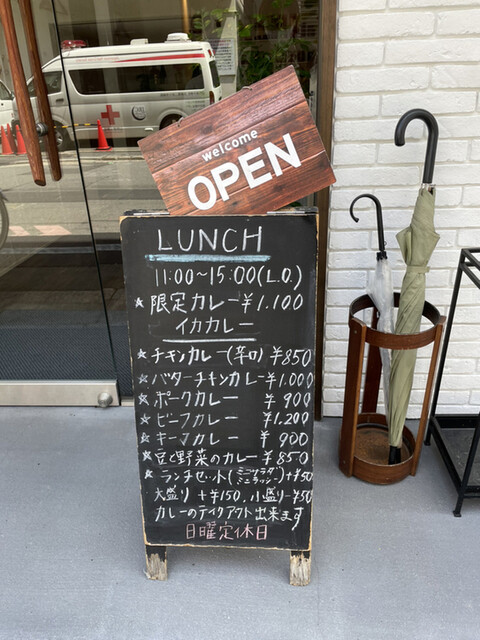 welcome
OPEN
LUNCH
11:00～15:00(L.O.)
★限定カレー¥1.100
イカカレー
★チキンカレー(辛口)¥850
★バターチキンカレー¥1.000
★ポークカレー ¥900
★ビーフカレー ¥1.200
★キーマカレー ¥900
★豆と野菜のカレー¥850
★ランチセット(ミニサラダ ミニラッシー)+¥50
大盛り+¥150、小盛り-¥50
カレーのテイクアウト出来ます
日曜定休日